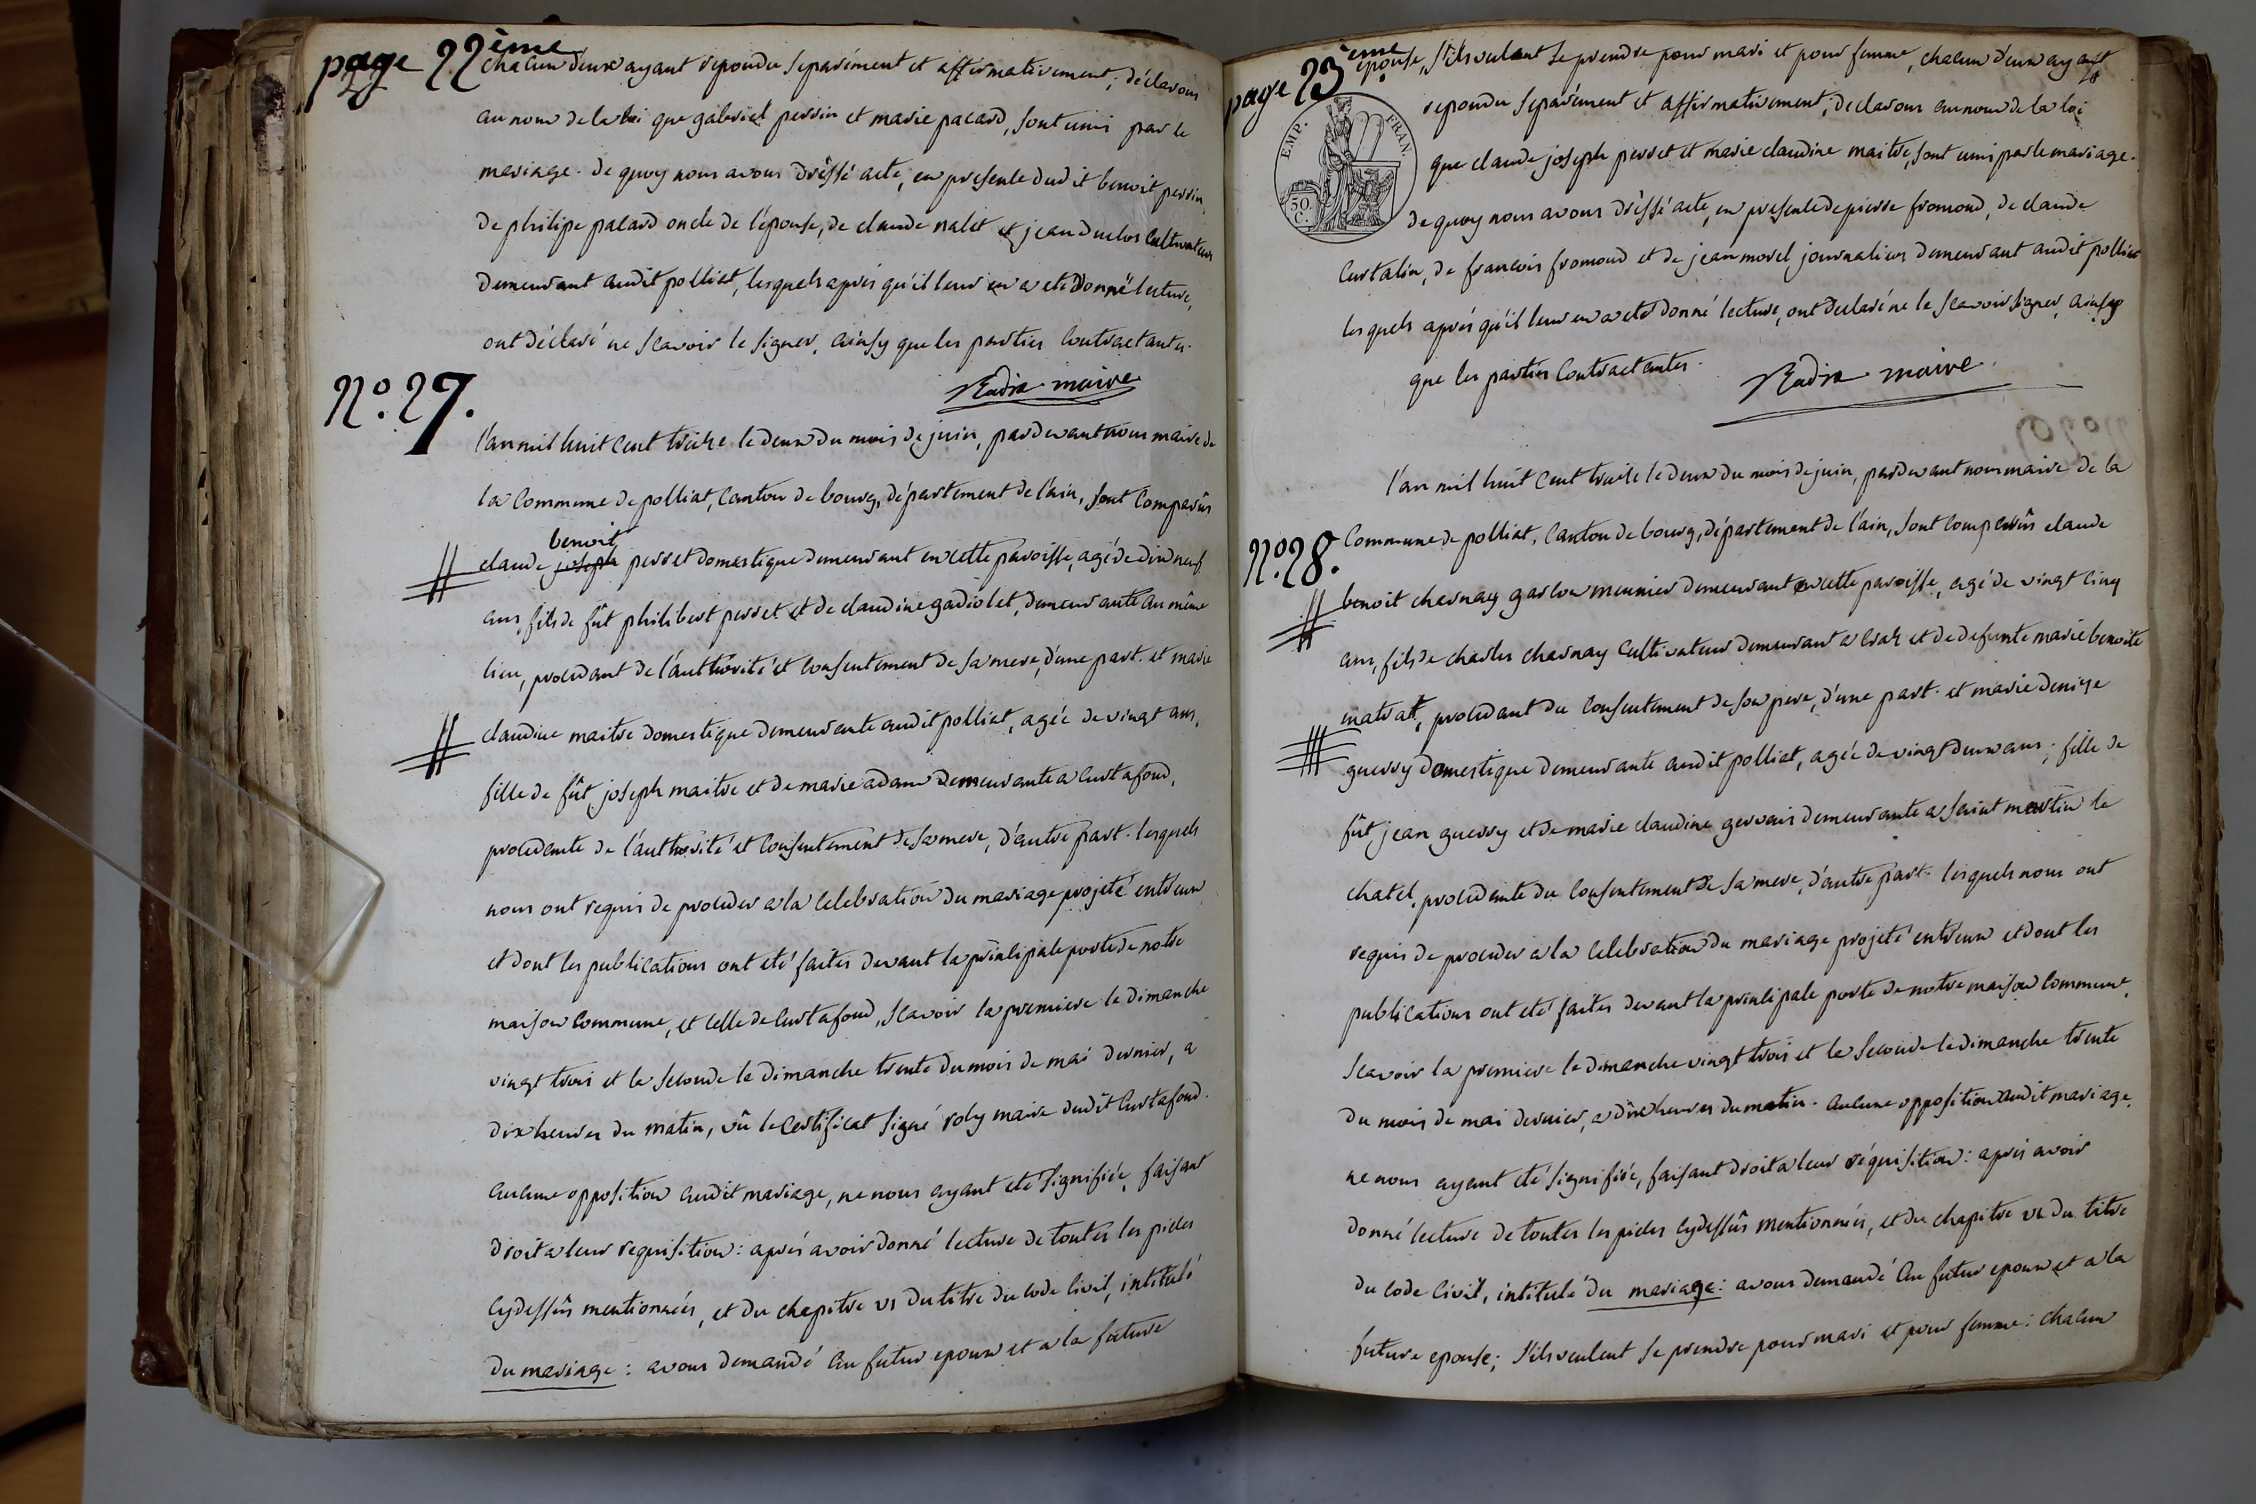 page 22ème
chacun deux ayant repondu separément et affirmativement; déclarons
au nom de la loi que gabriel perrin et marie pacard, sont unis par le
mariage. de quoy nous avons dréssé acte, en presence dudit benoit perrin,
de philipe pacard oncle de l'épouse, de claude nalet et jean duclos cultivateurs
demeurant audit polliat, lesquels aprés qu'il leur en a eté donné lecture,
ont déclaré ne scavoir le signer, ainsy que les parties contractantes.
maire
N.º 27.
l'an mil huit cent treize le deux du mois de juin, pardevant nous maire de
la commune de polliat, canton de bourg, département de l'ain, sont comparûs
benoit
claude joseph perret domestique demeurant en cette paroisse, agé de dix neuf
ans, fils de fût philibert perret et de claudine gadiolet, demeurante au même
lieu, procedant de l'authorité et consentement de sa mere, d'une part. et marie
claudine maitre domestique demeurante audit polliat, agée de vingt ans,
fille de fût joseph maitre et de marie adam demeurante a curtafond,
procedante de l'authorité et consentement de sa mere, d'autre part. lesquels
nous ont requis de proceder a la celebration du mariage projeté entreux
et dont les publications ont eté faites devant la principale porte de notre
maison commune, et celle de curtafond, scavoir la premiere le dimanche
vingt trois et la seconde le dimanche trente du mois de mai dernier, a
dix heures du matin, vû le certificat signé roby maire dudit curtafond.
aucune opposition audit mariage, ne nous ayant eté signifiée, faisant
droit a leur requisition: aprés avoir donné lecture de toutes les pieces
cydessûs mentionnées, et du chapitre vi du titre du code civil, intitulé
du mariage: avons demandé au futur epoux et a la future
page 23ème
epouse, s'ils veulent se prendre pour mari et pour femme, chacun d'eux ayant
repondu separément et affirmativement; declarons au nom de la loi
que claude joseph perret et marie claudine maitre, sont unis par le mariage.
de quoy nous avons dréssé acte, en presence de pierre fromond, de claude
curtalin, de francois fromond et de jean morel journaliers demeurant audit polliat
lesquels aprés qu'il leur en a eté donné lecture, ont declaré ne le scavoir signer, ainsy
que les parties contractantes.
maire
EMP. FRAN.
50. C.
l'an mil huit cent treize le deux du mois de juin, pardevant nous maire de la
N.º 28.
commune de polliat, canton de bourg, département de l'ain, sont comparûs claude
benoit charnay garcon meunier demeurant en cette paroisse, agé de vingt cinq
ans, fils de charles charnay cultivateur demeurant a craz et de defunte marie benoite
matrat, procedant du consentement de son pere, d'une part. et marie denise
guerry domestique demeurante audit polliat, agée de vingt deux ans; fille de
fût jean guerry et de marie claudine gervais demeurante a saint martin le
chatel, procedante du consentement de sa mere, d'autre part. lesquels nous ont
requis de proceder a la celebration du mariage projeté entreux et dont les
publications ont eté faites devant la principale porte de notre maison commune,
scavoir la premiere le dimanche vingt trois et la seconde le dimanche trente
du mois de mai dernier, a dix heures du matin. aucune opposition audit mariage,
ne nous ayant eté signifiée, faisant droit a leur réquisition: aprés avoir
donné lecture de toutes les pieces cydessûs mentionnées, et du chapitre vi du titre
du code civil, intitulé du mariage: avons demandé au futur epoux et a la
future epouse; s'ils veulent se prendre pour mari et pour femme: chacun